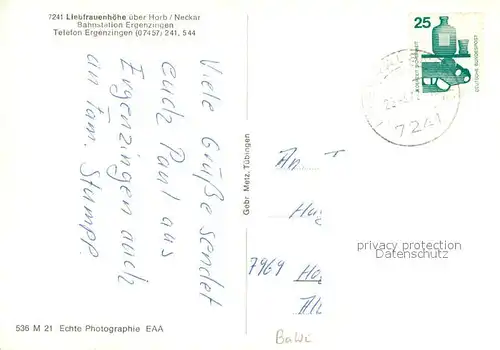 7241 Liebfrauenhöhe über Horb / Neckar
Bahnstation Ergenzingen
Telefon Ergenzingen (07457) 241, 544
Viele Grüße sendet
Euch Paul aus
Ergenzingen auch
an Fam. Stumpp.
Gebr. Metz, Tübingen
25
DEUTSCHE BUNDESPOST
7241
An
7969
privacy protection
Datenschutz
536 M 21 Echte Photographie EAA
BaWü